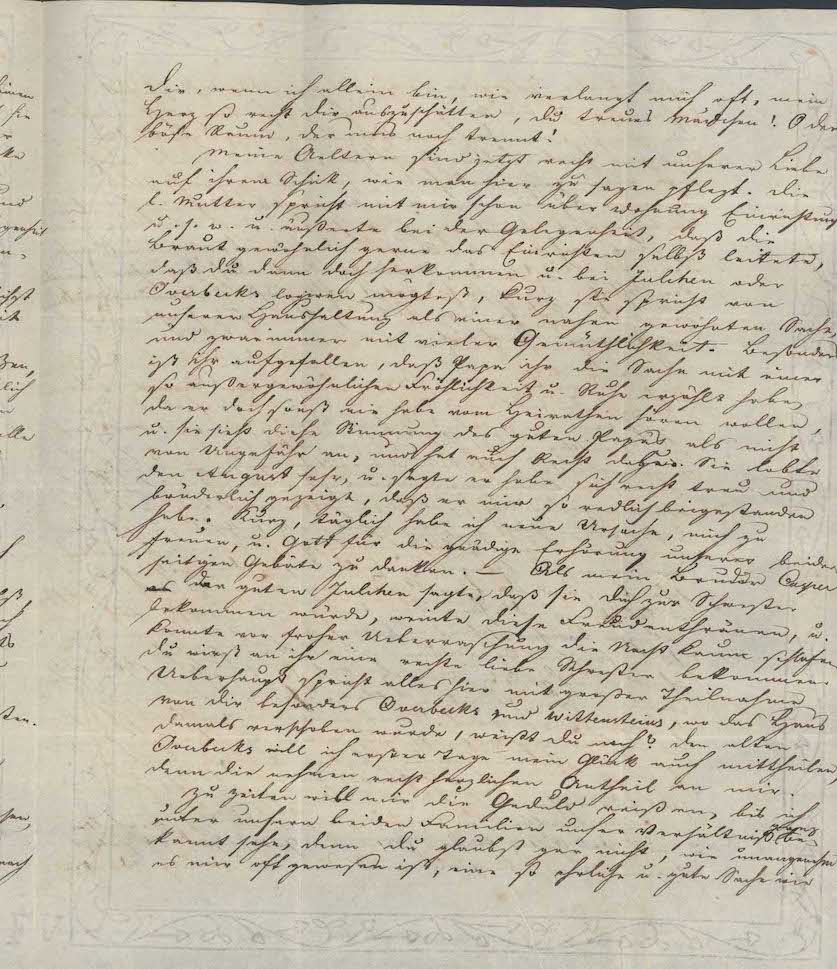 Dir, wenn ich allein bin, wie verlangt mich oft, mein
Herz so recht Dir auszuschütten, Du treues Mädchen! O der
böse Raum, der uns noch trennt!
Meine Aeltern sind jetzt recht mit unserer Liebe
auf ihrem Schick, wie man hier zu sagen pflegt. Die
l. Mutter spricht mit mir schon über Wohnung Einrichtung
u. s. w. u. äußerte bei der Gelegenheit, daß die
Braut gewöhnlich gerne das Einrichten selbst leitete,
daß Du dann doch herkommen u. bei Julchen oder
Overbecks logiren mögtest, kurz sie spricht von
unserer Haushaltung als einer nahen gewohnten Sache,
und zwar immer mit vieler Gemüthlichkeit. Besonders
ist ihr aufgefallen, daß Papa ihr die Sache mit einer
so außergewöhnlichen Fröhlichkeit u. Ruhe erzählt habe,
da er doch sonst nie habe vom Heirathen hören wollen
u. sie sieht diese Stimmung des guten Papas als nicht
von Ungefähr an, und hat auch Recht daran. Sie lobte
den August sehr, u. sagte er habe sich recht treu und
brüderlich gezeigt, daß er mir so redlich beigestanden
habe. Kurz, täglich habe ich neue Ursache, mich zu
freuen, u. Gott für die gnädige Erhörung unserer beider-
seitigen Gebäte zu danken. — Als mein Bruder Caspar
der guten Julchen sagte, daß sie Dich zur Schwester
bekommen würde, weinte diese Freudenthränen, u.
konnte vor froher Ueberraschung die Nacht kaum schlafen.
Du wirst an ihr eine rechte liebe Schwester bekommen.
Ueberhaupt spricht alles hier mit großer Theilnahme
von Dir besonders Overbecks und Wittensteins, wo das Haus
damals verschoben wurde, weißt Du noch? Den alten
Overbecks will ich erster Tage mein Glück auch mittheilen,
denn die nehmen recht herzlichen Antheil an mir.
Zu Zeiten will mir die Geduld reißen, bis ich
unter unsern beiden Familien unser Verhältniß ganz be-
kannt sehe, denn Du glaubst gar nicht, wie unangenehm
es mir oft gewesen ist, eine so ehrliche u. gute Sache wie